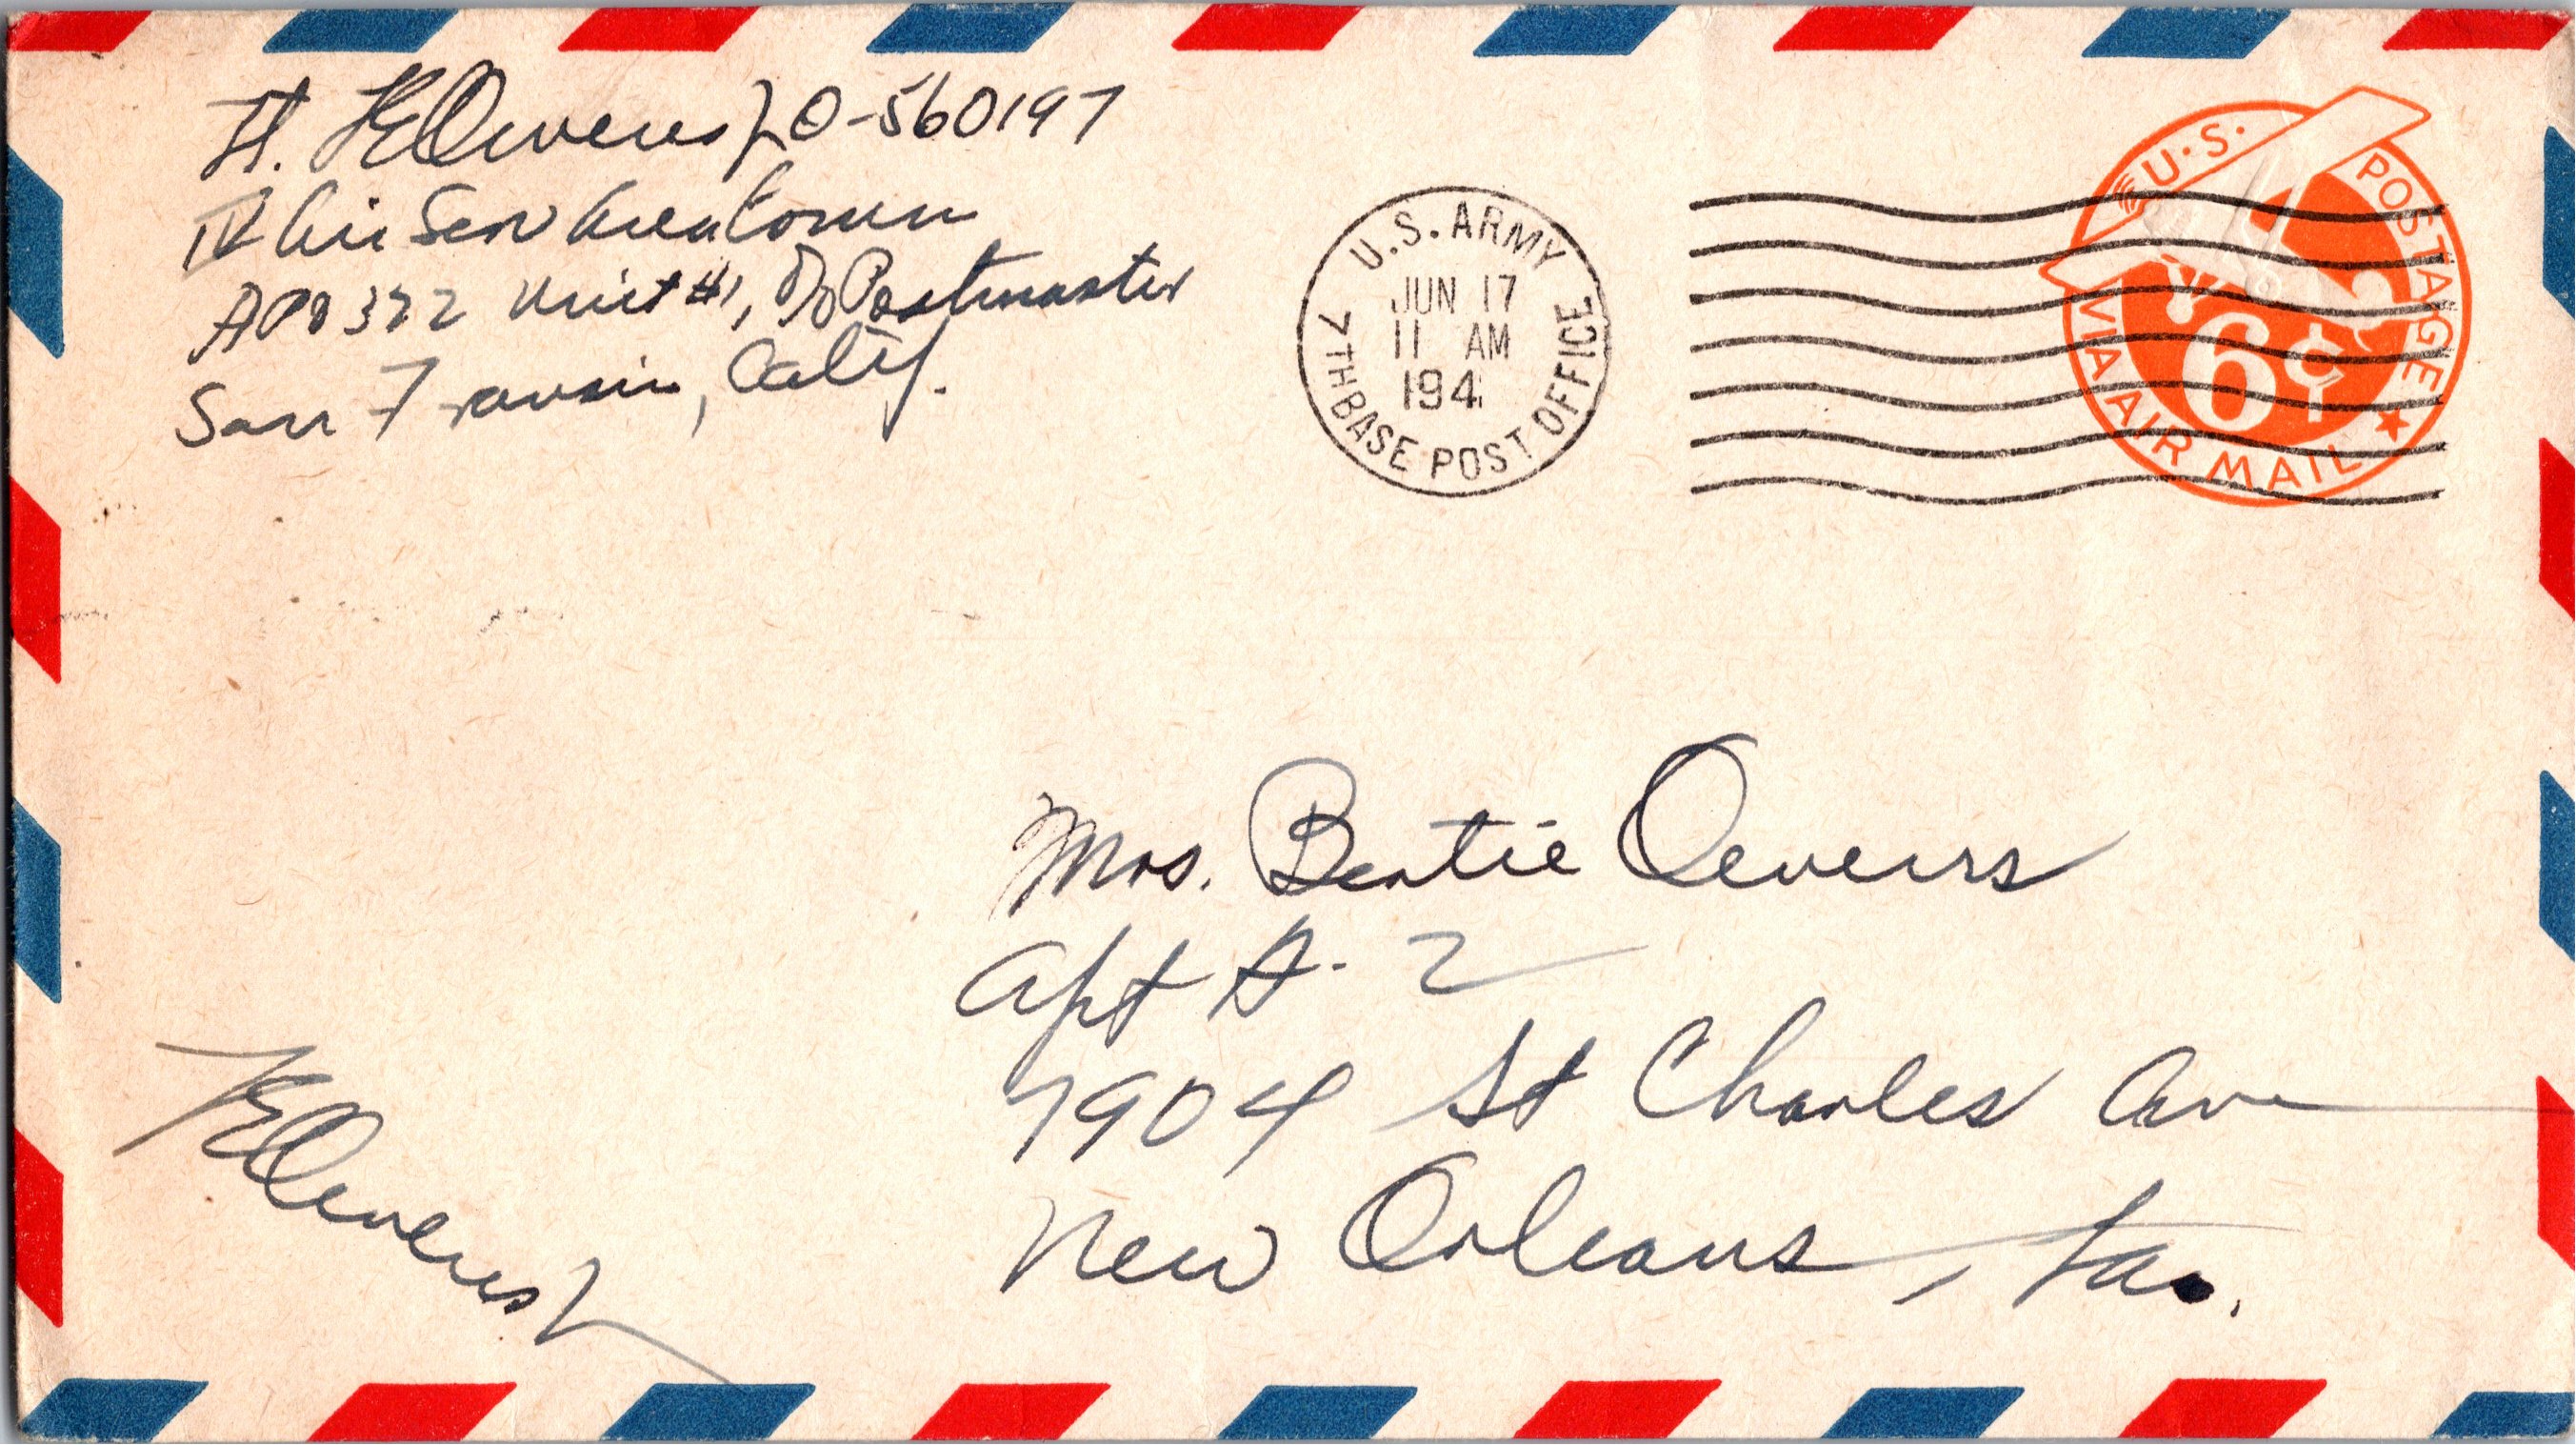 Lt. KE Owens Jr O-560197
IV Air Serv Area Comm
APO 322 Unit #1, c/o Postmaster
San Francisco, Calif.
U.S. ARMY
JUN 17
11 AM
194
7TH BASE POST OFFICE
U.S. POSTAGE
6¢
VIA AIR MAIL
Mrs. Bertie Owens
Apt A. 2
7904 St Charles Ave
New Orleans, La.
KE Owens Jr